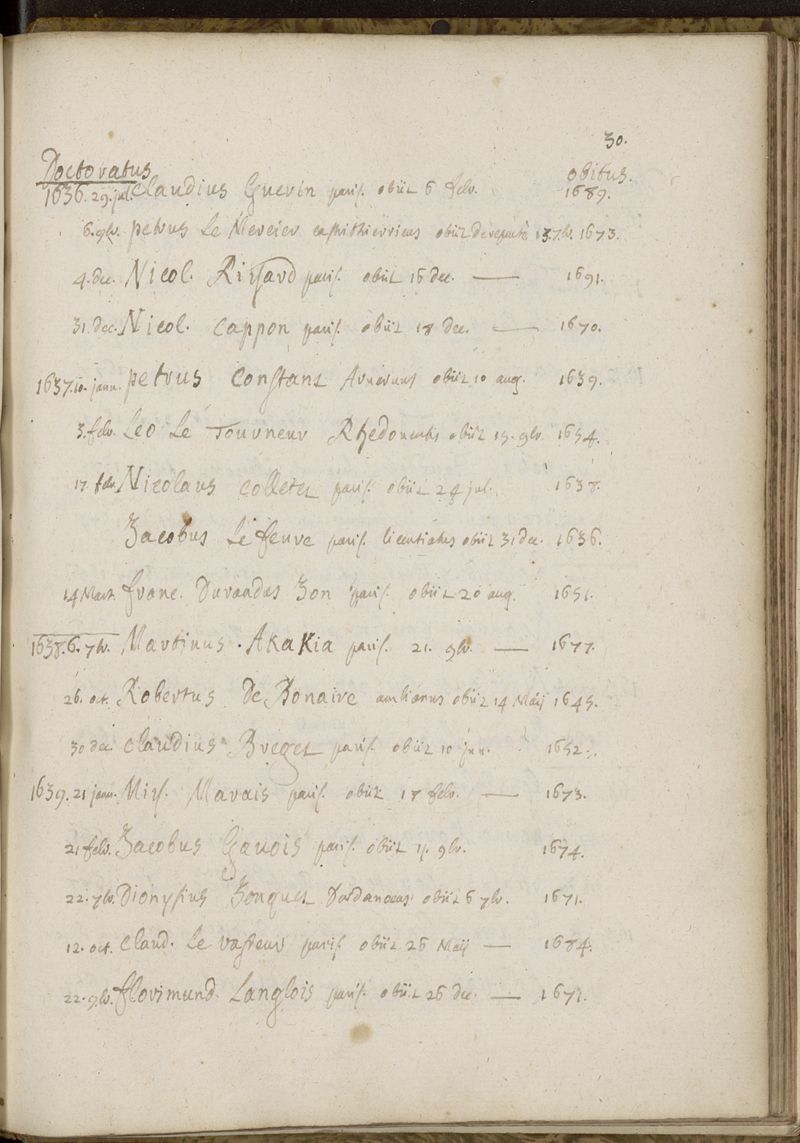 30.
Doctoratus obitus.
1636. 29. jul. Claudius Guerin paris. obiit 6 febr. 1689.
6. 9br. petrus Le Mercier obiit 7br. 1673.
4. dec. Nicol. Rissard paris. obiit 16 dec. — 1691.
31. Dec. Nicol. Cappon paris. obiit 18 dec. — 1670.
1637. 10. janu. petrus Constant Arvernus obiit 10 aug. 1639.
3. febr. Leo Le Tourneur Rhedonensis obiit 15. 9br. 1654.
17. febr. Nicolaus Colletet paris. obiit 24 jul. 1638.
Jacobus Le feuve paris. licentiatus obiit 31 dec. 1636.
14 Mart. franc. Duraudas Zon paris. obiit 20 aug. 1651.
1638. 6. 7br. Martinus. AKaKia paris. 21. 9br. — 1677.
26. oct. Robertus De Bonaire ambianus obiit 14 Maij 1645.
30 dec. Claudius Breget paris. obiit 10 jun. 1652.
1639. 21 janu. Mich. Marais paris. obiit 18 febr. — 1673.
21 febr. Jacobus Gavois paris. obiit 11. 9br. 1674.
22. 7br. Dionysius Jonquet obiit 6 7br. 1671.
12. oct. Claud. Le vasseur paris. obiit 26 Maij — 1684.
22. 9br. florimund. Langlois paris. obiit 26 dec. — 1671.